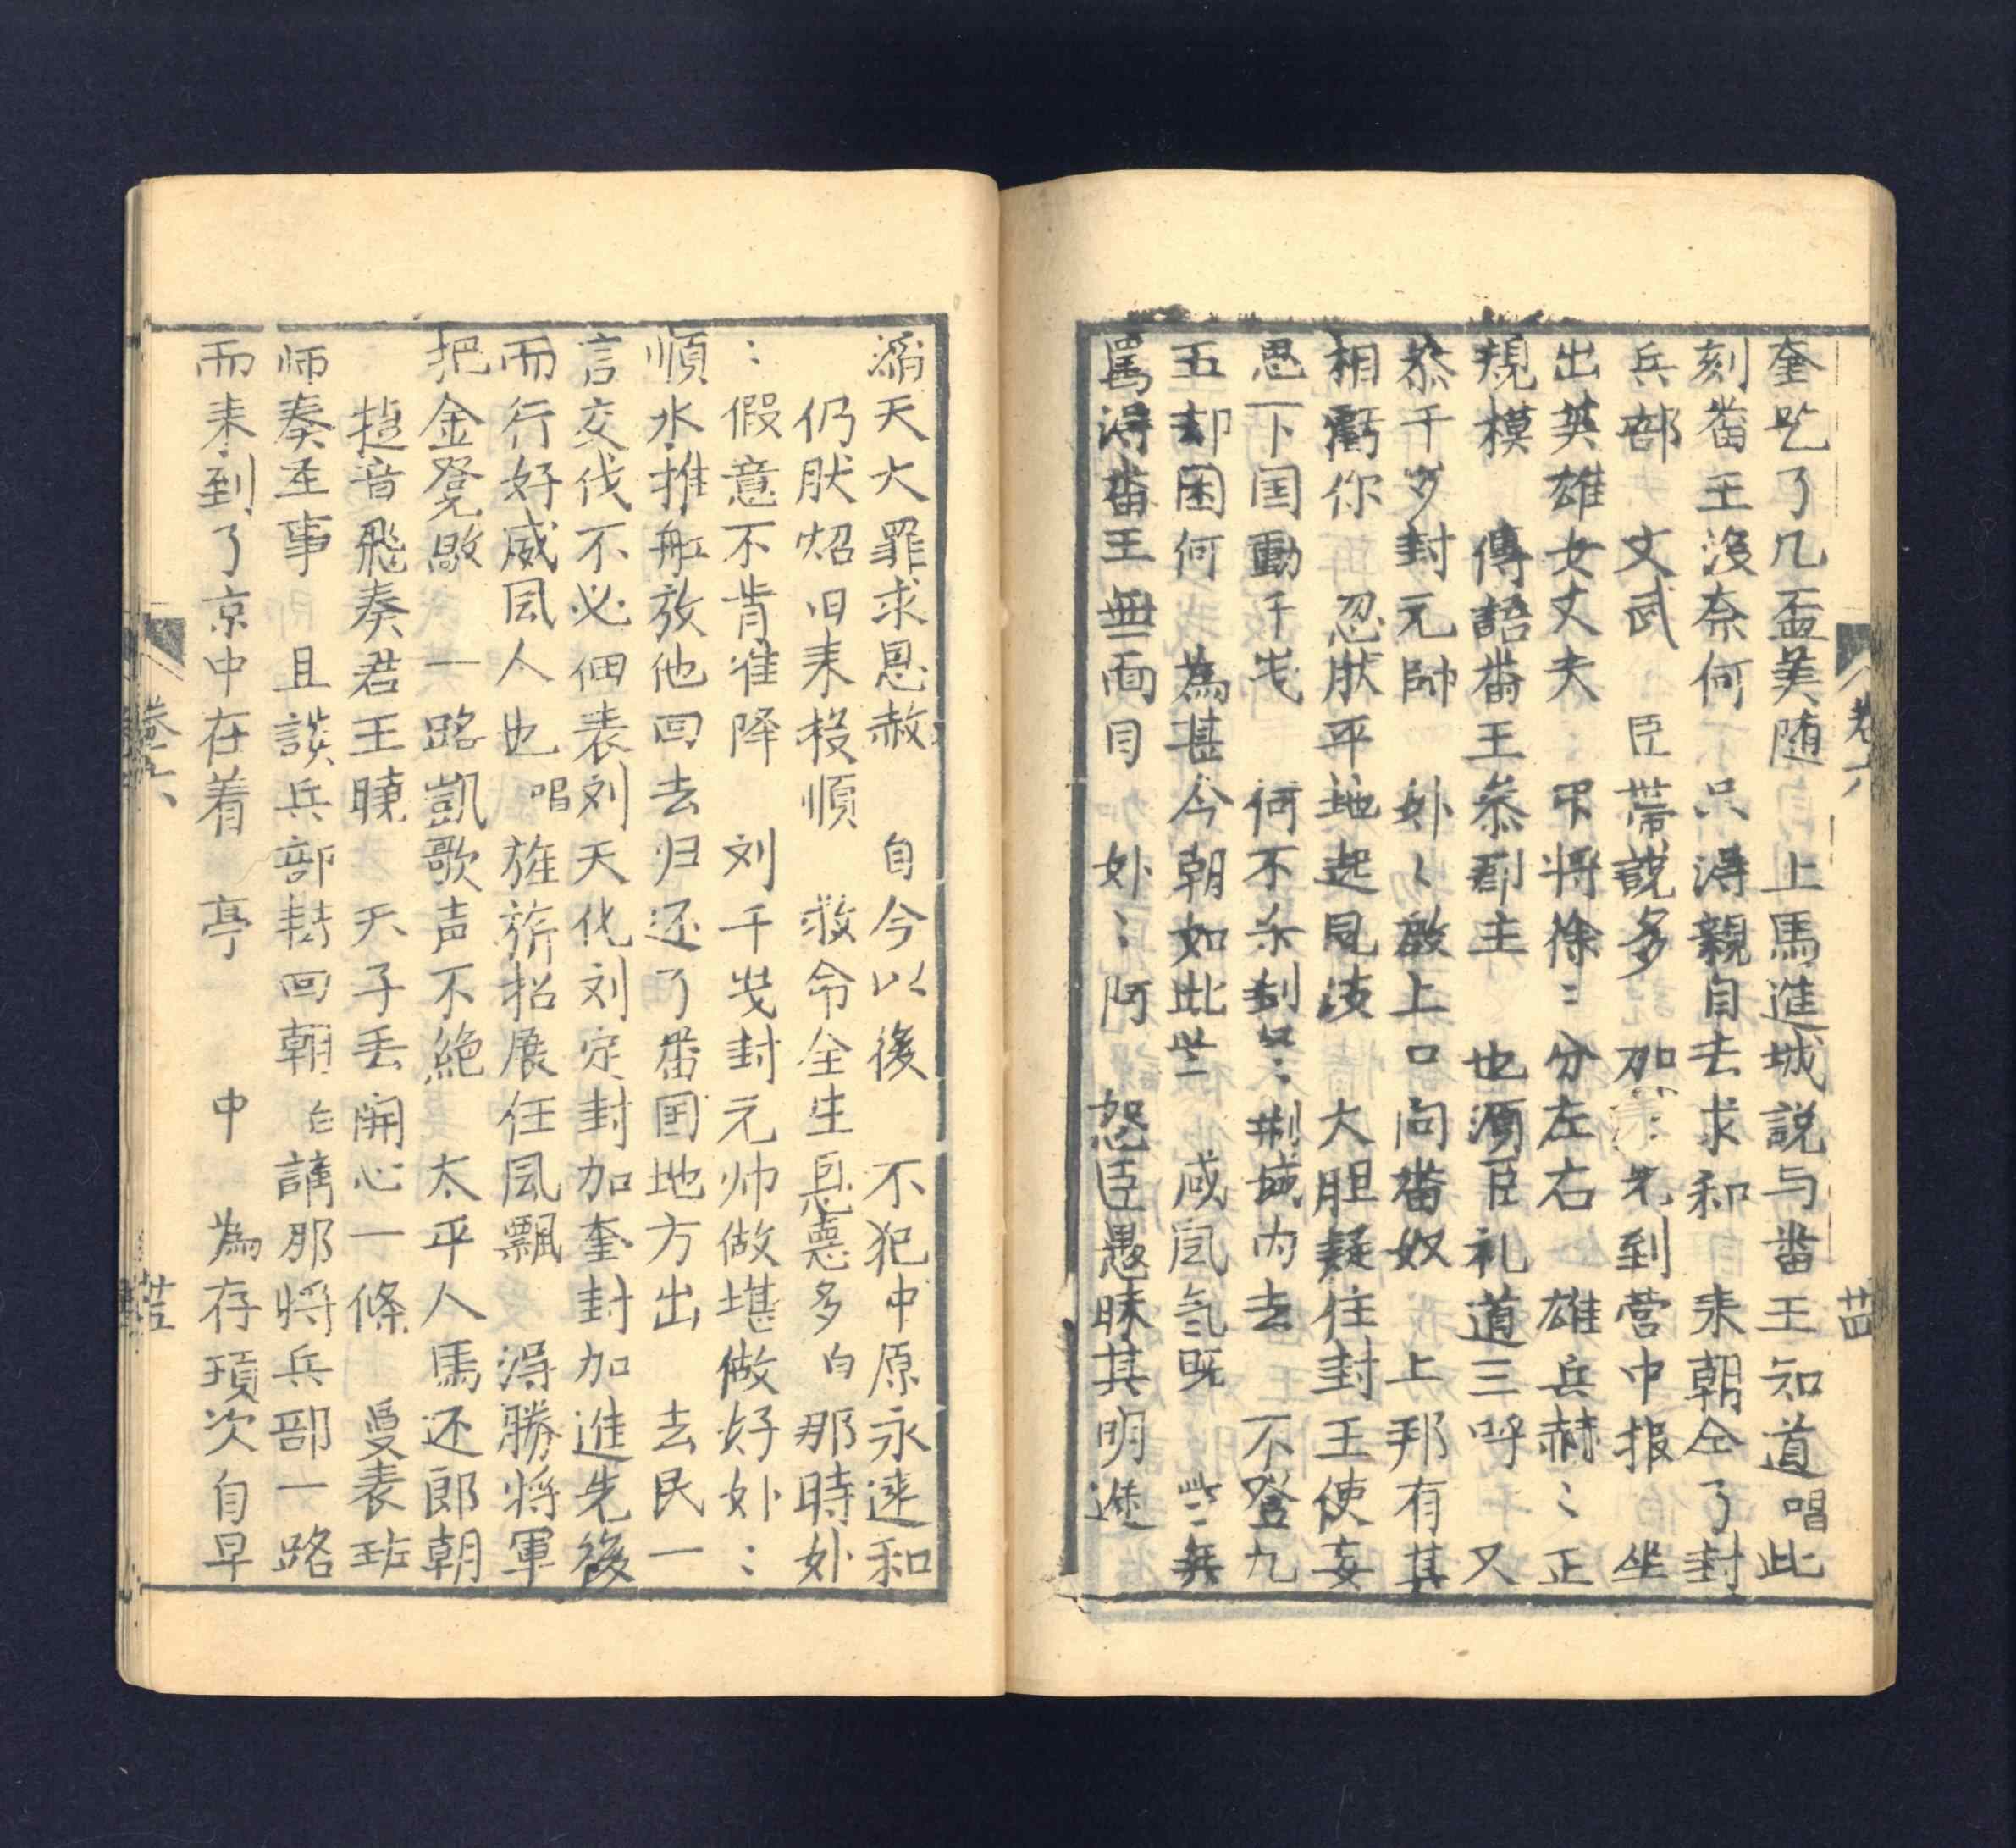 卷六
廿四
奎吃了几盃美随 上馬進城説与畨王知道唱此
刻畨王没奈何 只得親自去求和 来朝仝了封
兵部 文武臣帶説多 加 先到营中报 坐
出英雄女丈夫 弔将徐〻分左右 雄兵赫〻正
規模 傳語畨王叅郡主 也須臣礼道三呼 又
叅千岁封元帥 妙〻啟上口向畨奴 上邦有甚
相虧你 忽肰平地起风波 大胆疑住封王使妄
思下国動干戈 何不杀刮奴〻荆城内去 不登九
五却困何 為甚今朝如此 咸 气既 些〻無
罵得畨王無面目 妙〻阿 恕臣愚昧其明迯
滔天大罪求恩赦 自今以後 不犯中原永遠和
仍肰炤旧来投順 救令全生恩德多白那時妙
〻假意不肯准降 刘千岁封元帅做堪做好妙〻
順水推船放他回去归还了畨国地方出 去民一
言交伐不必细表刘天化刘定封加奎封加進先後
而行好威风人也唱旌旂招展任风飄 得勝将軍
把金凳敲 一路凱歌声不絶 太平人馬还郎朝
捷音飛奏君王曉 天子丢開心一條 曼表班
师奏至事 且談兵部封回朝白講那将兵部一路
而来到了京中在着 亭 中 為存項次自早
卷六